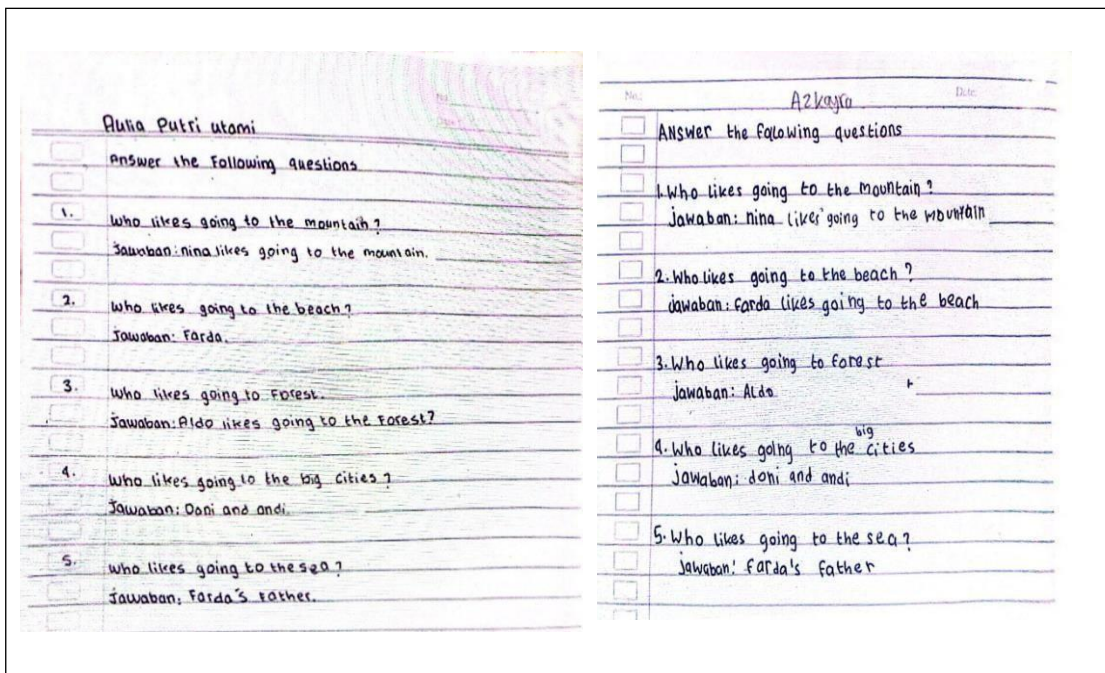 Aulia Putri utami
Answer the Following questions
1. Who likes going to the mountain?
Jawaban: nina likes going to the mountain.
2. Who likes going to the beach?
Jawaban: Farda.
3. Who likes going to Forest.
Jawaban: Aldo likes going to the Forest?
4. Who likes going to the big cities?
Jawaban: Doni and andi.
5. Who likes going to the sea?
Jawaban: Farda's Father.
No.: Date
Azkayra
Answer the Following questions
1. Who likes going to the mountain?
jawaban: nina likes going to the mountain
2. Who likes going to the beach?
Jawaban: Farda likes going to the beach
3. Who likes going to forest
jawaban: Aldo
big
4. Who likes going to the cities
Jawaban: doni and andi
5. Who likes going to the sea?
Jawaban: Farda's Father